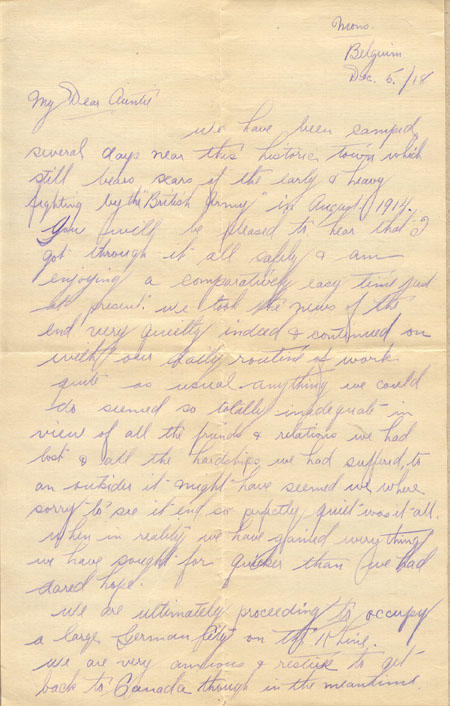 Mons.
Belguim
Dec. 5./18
My Dear Auntie
We have been camped
several days near this historic town which
still bears scars of the early & heavy
fighting by the "British Army" in August 1914.
You will be pleased to hear that I
got through it all safely & am
enjoying a comparatively easy time just
at present. We took the news of the
end very quietly indeed & continued on
with our daily routine of work
quite as usual anything we could
do seemed so totally inadequate in
view of all the friends & relations we had
lost & all the hardships we had suffered, to
an outsider it might have seemed we where
sorry to see it end so perfectly quiet was it all.
when in reality we have gained everything
we have fought for quicker than we had
dared hope.
We are ultimately proceeding to occupy
a large German City on the Rhine.
We are very anxious & restive to get
back to Canada though in the meantime.